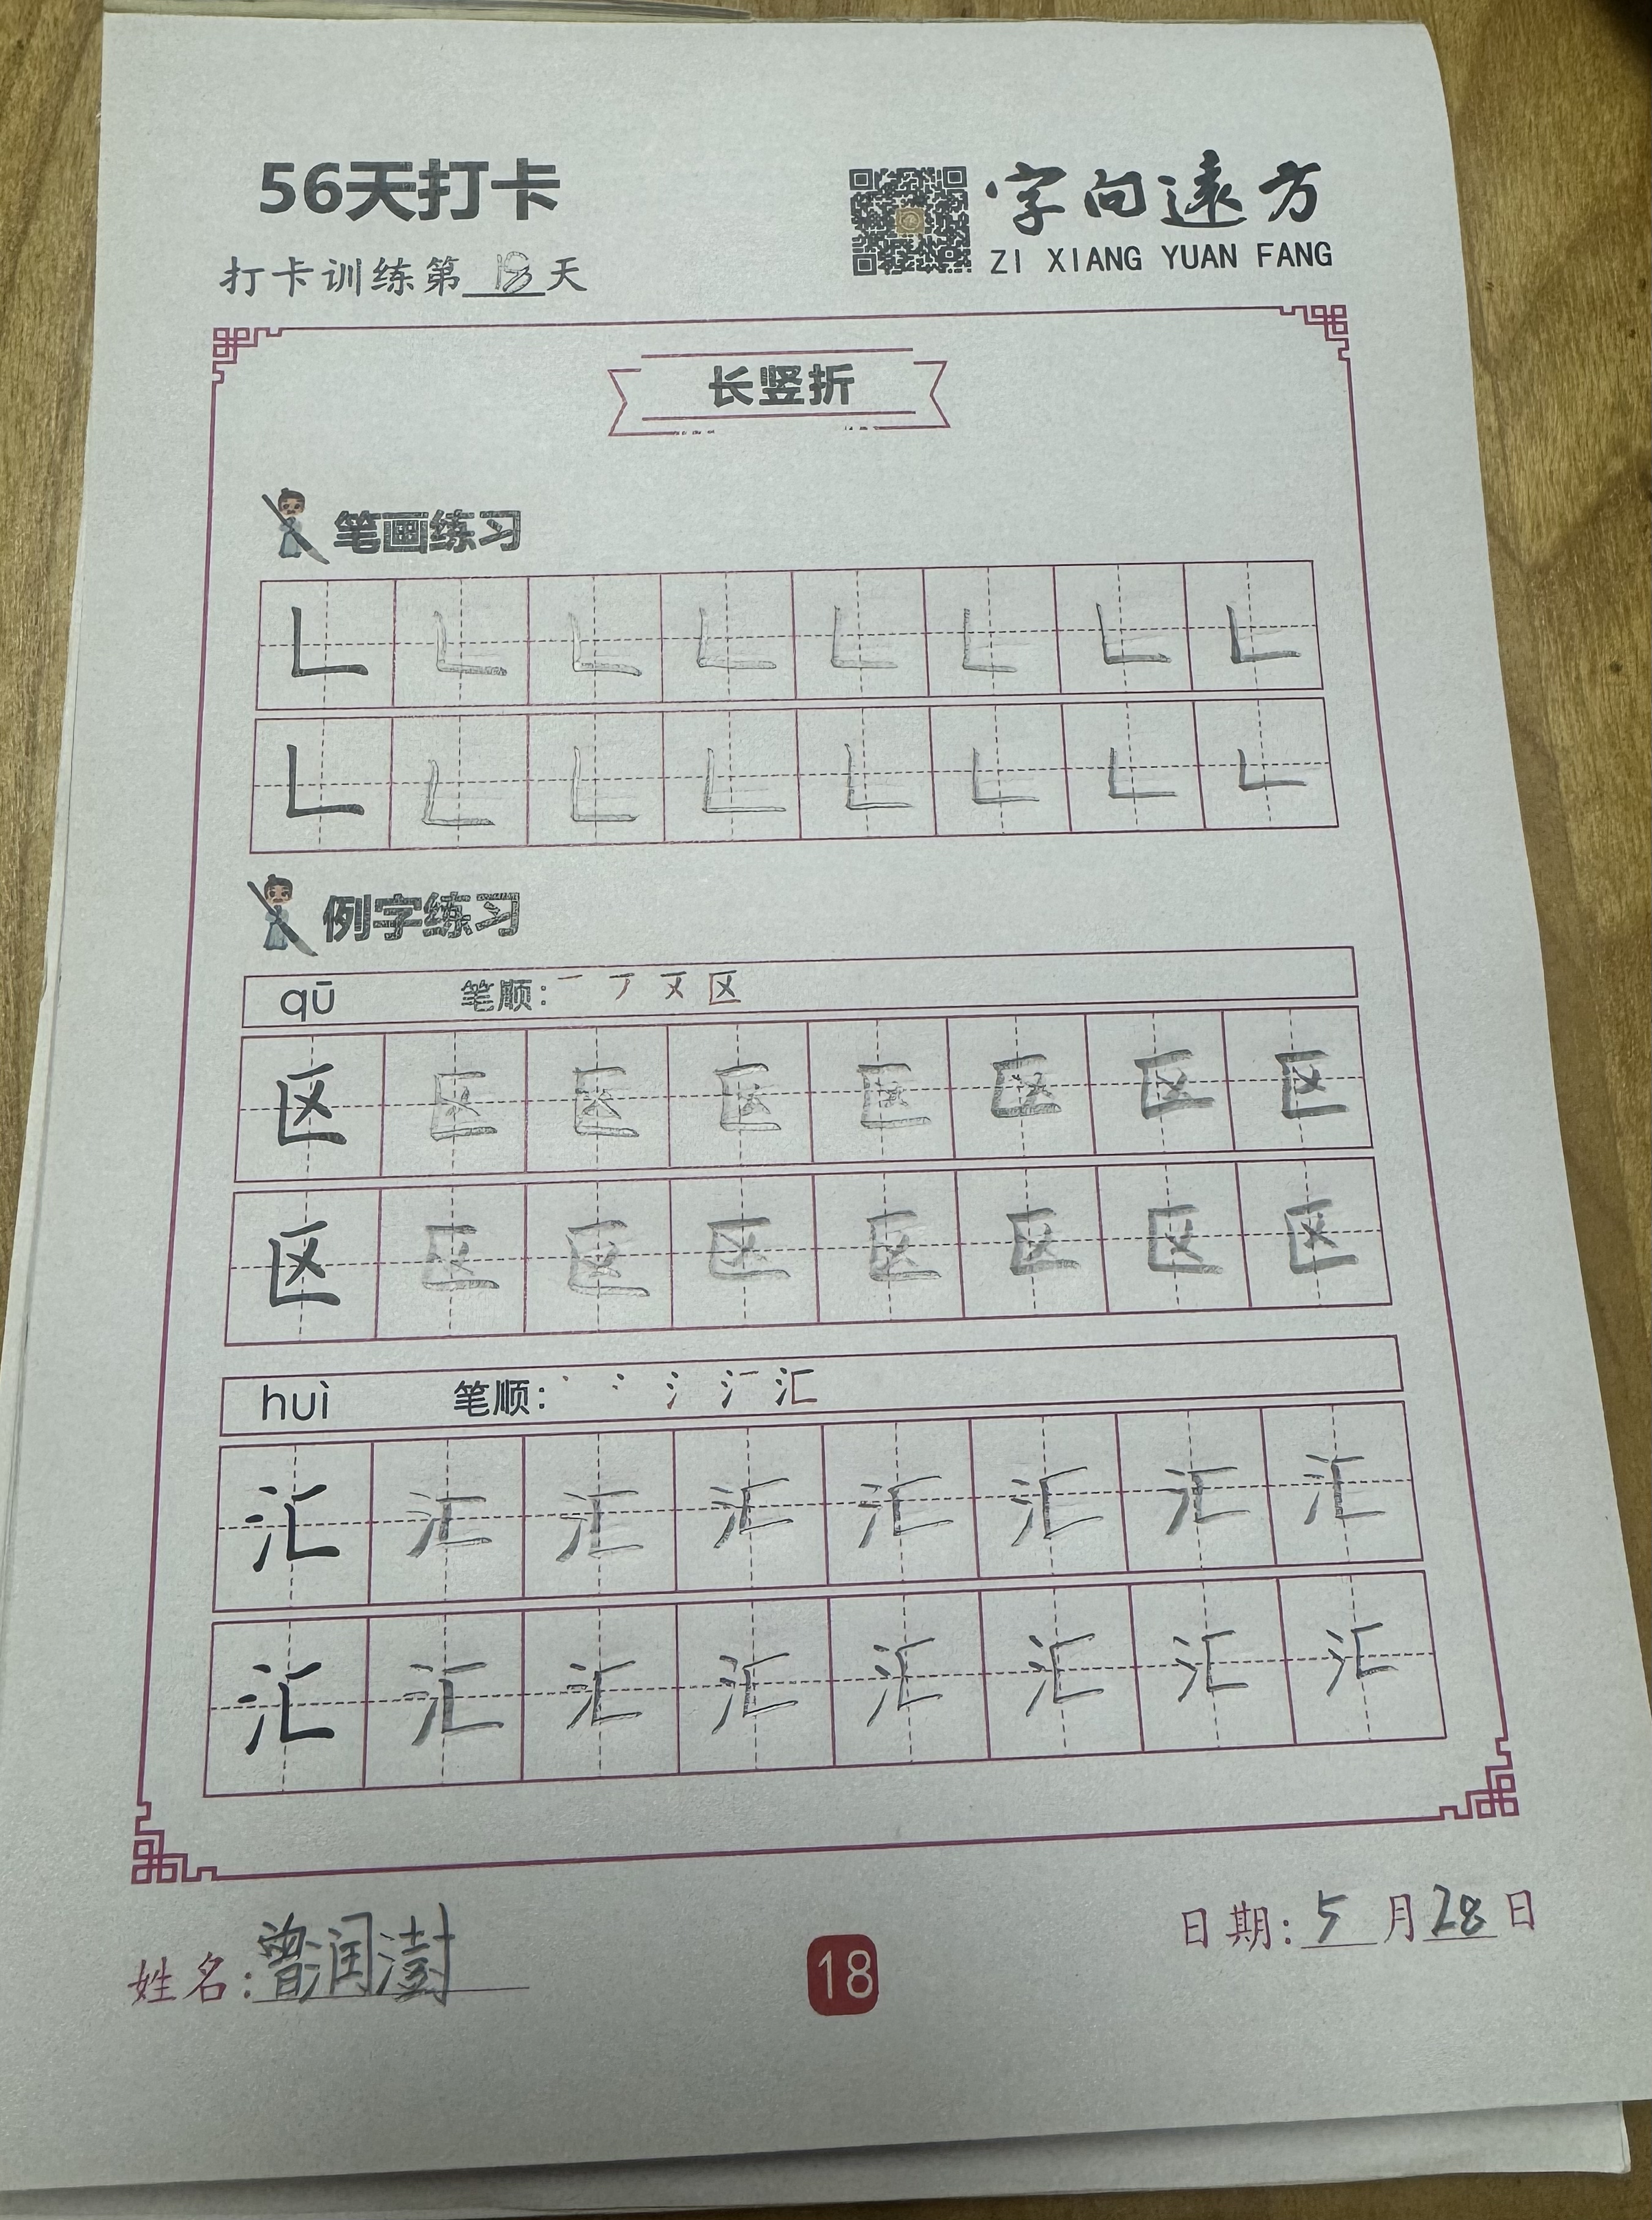 56天打卡
字向遠方
打卡训练第18天
ZI XIANG YUAN FANG
长竖折
笔画练习
𠃊 𠃊 𠃊 𠃊 𠃊 𠃊 𠃊 𠃊
𠃊 𠃊 𠃊 𠃊 𠃊 𠃊 𠃊 𠃊
例字练习
qū 笔顺: 区
区 区 区 区 区 区 区 区
区 区 区 区 区 区 区 区
huì 笔顺: 汇
汇 汇 汇 汇 汇 汇 汇 汇
汇 汇 汇 汇 汇 汇 汇 汇
姓名:曾润澍
18
日期:5月28日